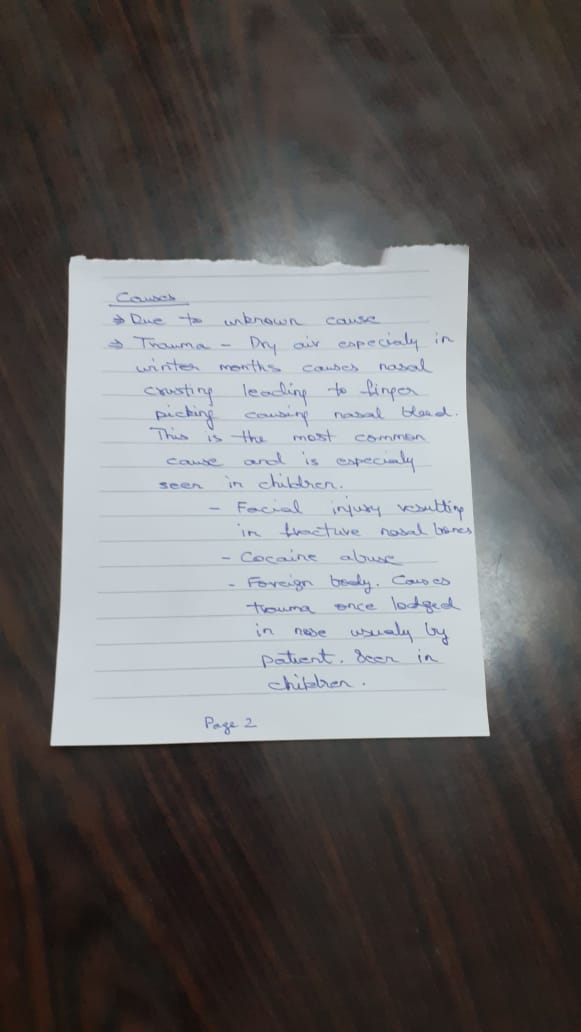 Causes
→ Due to unknown cause
→ Trauma - Dry air especialy in
winter months causes nasal
crusting leading to finger
picking causing nasal bleed.
This is the most common
cause and is especialy
seen in children.
- Facial injury resulting
in fracture nasal bones
- Cocaine abuse
- Foreign body. Causes
trauma once lodged
in nose usualy by
patient. Seen in
children.
Page 2